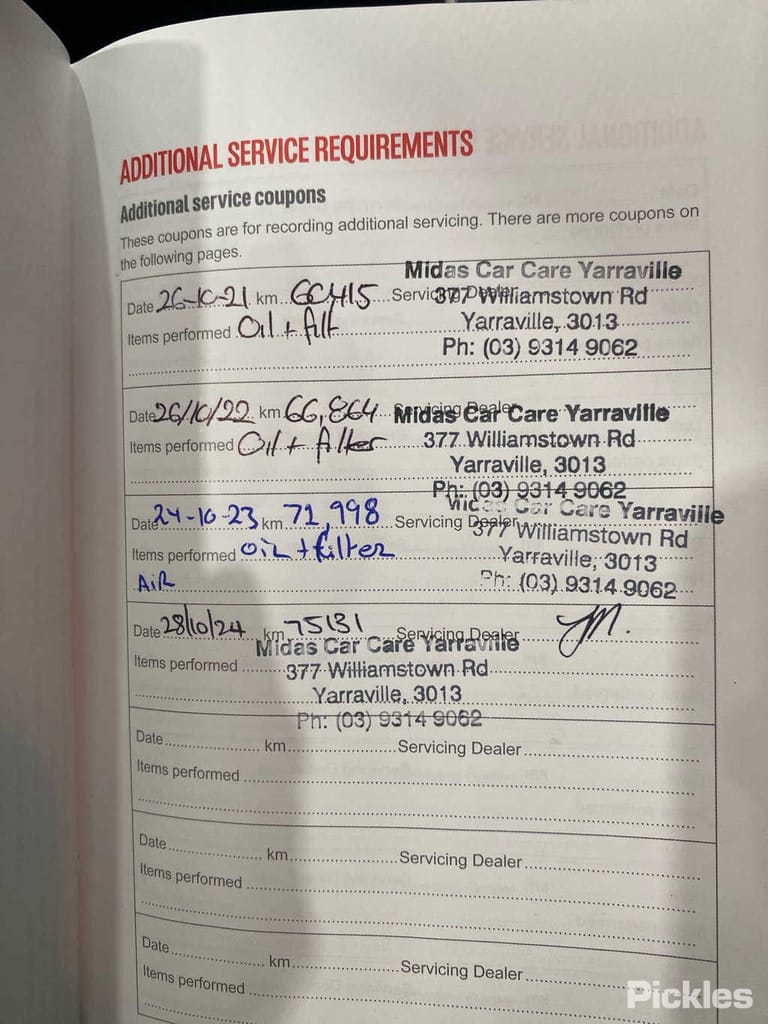 ADDITIONAL SERVICE REQUIREMENTS
Additional service coupons
These coupons are for recording additional servicing. There are more coupons on
the following pages.
Midas Car Care Yarraville
Date 26-10-21 km Servicing Dealer 377 Williamstown Rd
Items performed Oil + filt Yarraville, 3013
Ph: (03) 9314 9062
Date 26/10/22 km 66,864 Servicing Dealer Midas Car Care Yarraville
Items performed Oil + filter 377 Williamstown Rd
Yarraville, 3013
Ph: (03) 9314 9062
Midas Car Care Yarraville
Date 24-10-23 km 71,998 Servicing Dealer 377 Williamstown Rd
Items performed OIL + Filter Yarraville, 3013
AIR Ph: (03) 9314 9062
Date 28/10/24 km 75131 Servicing Dealer
Midas Car Care Yarraville
Items performed 377 Williamstown Rd
Yarraville, 3013
Ph: (03) 9314 9062
Date km Servicing Dealer
Items performed
Date km Servicing Dealer
Items performed
Date km Servicing Dealer
Items performed
Pickles